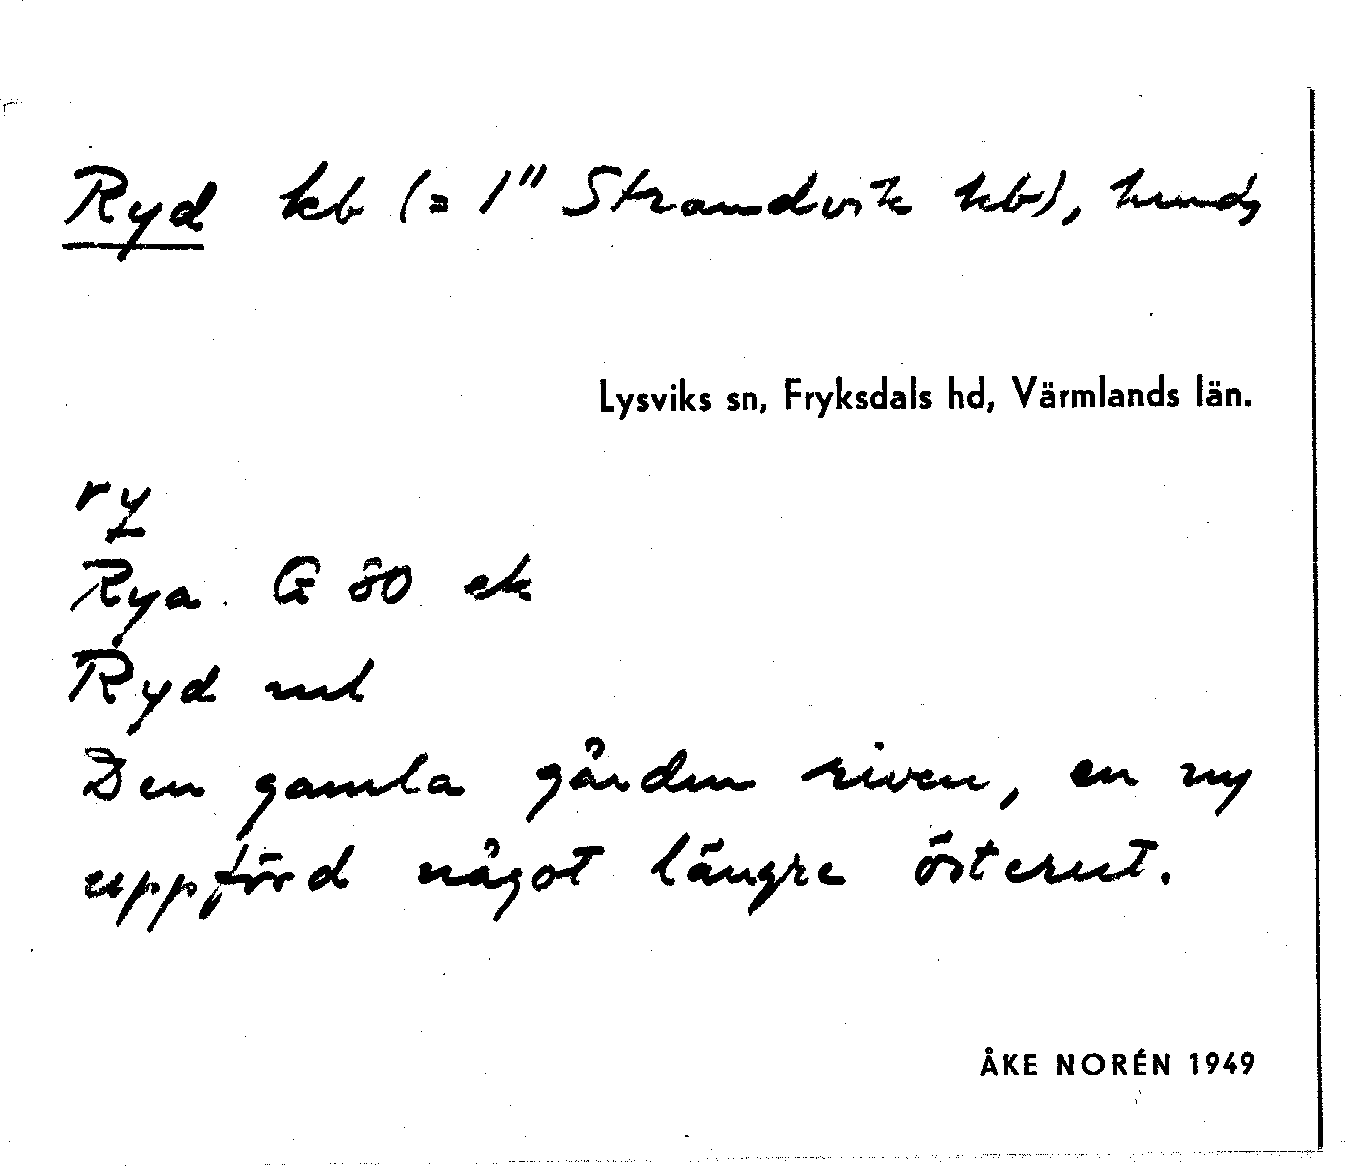 Ryd kb (= 1" Strandvik kb), hmd,
Lysviks sn, Fryksdals hd, Värmlands län.
ry
Rya G 80 ek
Ryd
Den gamla gården riven, en ny
uppförd något längre österut.
ÅKE NORÉN 1949